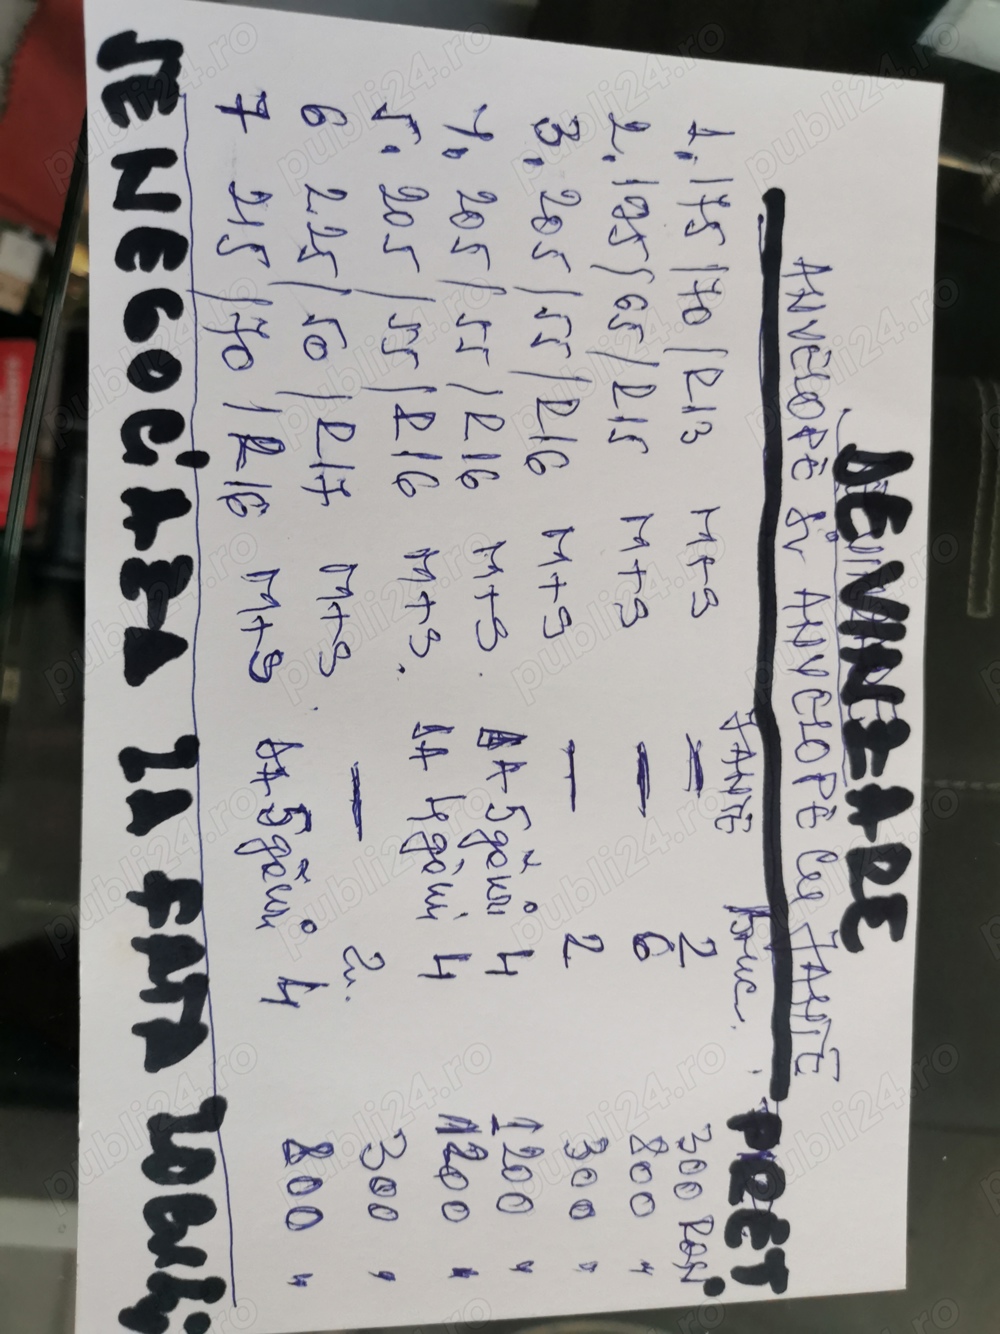 DE VINZARE
ANVELOPE SI ANVELOPE CU JANTE
JANTE BUC. PRET
1. 175/70/R13 M+S — 2 300 RON
2. 195/65/R15 M+S — 6 800 "
3. 205/55/R16 M+S — 2 300 "
4. 205/55/R16 M+S. DA 5găuri 4 1200 "
5. 205/55/R16 M+S. DA 4găuri 4 1200 "
6 225/50/R17 M+S — 2. 300 "
7 215/70/R16 M+S DA 5găuri 4 800 "
SE NEGOCIAZA LA FATA LOCULUI
publi24.ro